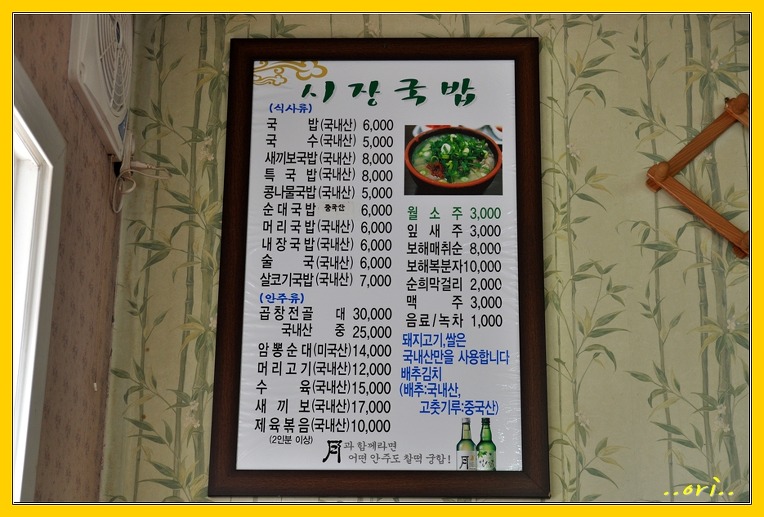 시장국밥
(식사류)
국 밥(국내산) 6,000
국 수(국내산) 5,000
새끼보국밥(국내산) 8,000
특 국 밥(국내산) 8,000
콩나물국밥(국내산) 5,000
순 대 국 밥 중국산 6,000
머리국밥(국내산) 6,000
내장국밥(국내산) 6,000
술 국(국내산) 6,000
살코기국밥(국내산) 7,000
(안주류)
곱창전골 대 30,000
국내산 중 25,000
암뽕순대(미국산)14,000
머리고기(국내산)12,000
수 육(국내산)15,000
새 끼 보(국내산)17,000
제육볶음(국내산)10,000
(2인분 이상)
월 소 주 3,000
잎 새 주 3,000
보해매취순 8,000
보해복분자10,000
순희막걸리 2,000
맥 주 3,000
음료/녹차 1,000
돼지고기,쌀은
국내산만을 사용합니다
배추김치
(배추:국내산,
고춧기루:중국산)
月과 함께라면
어떤 안주도 찰떡 궁합!
..orì..